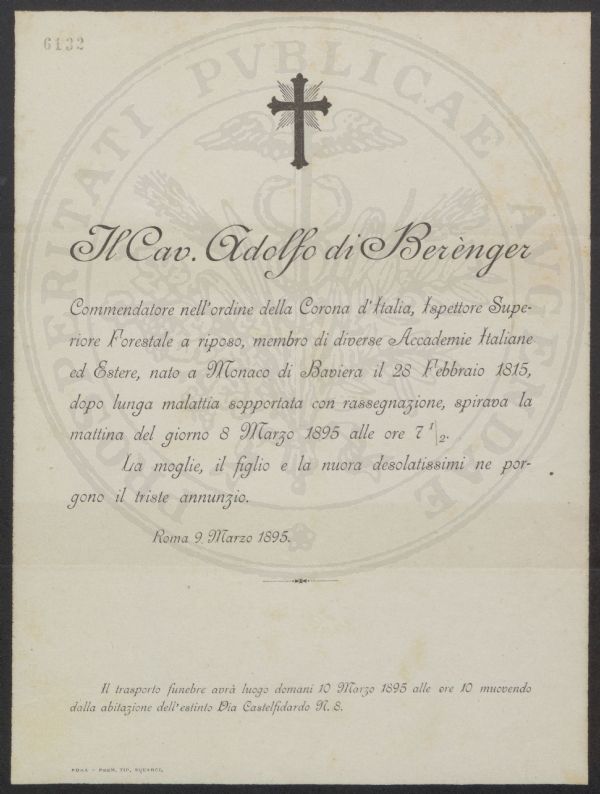 6132
PROSPERITATI PVBLICAE AVGENDAE
Il Cav. Adolfo di Berènger
Commendatore nell'ordine della Corona d'Italia, Ispettore Supe-
riore Forestale a riposo, membro di diverse Accademie Italiane
ed Estere, nato a Monaco di Baviera il 28 Febbraio 1815,
dopo lunga malattia sopportata con rassegnazione, spirava la
mattina del giorno 8 Marzo 1895 alle ore 7 1/2.
La moglie, il figlio e la nuora desolatissimi ne por-
gono il triste annunzio.
Roma 9 Marzo 1895.
Il trasporto funebre avrà luogo domani 10 Marzo 1895 alle ore 10 muovendo
dalla abitazione dell'estinto Via Castelfidardo N. 8.
ROMA – PREM. TIP. SQUARCI.